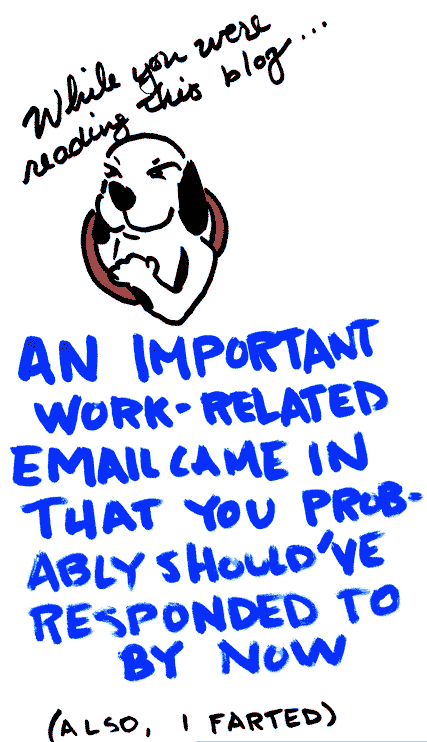 While you were
reading this blog...
AN IMPORTANT
WORK-RELATED
EMAIL CAME IN
THAT YOU PROB-
ABLY SHOULD'VE
RESPONDED TO
BY NOW
(ALSO, I FARTED)